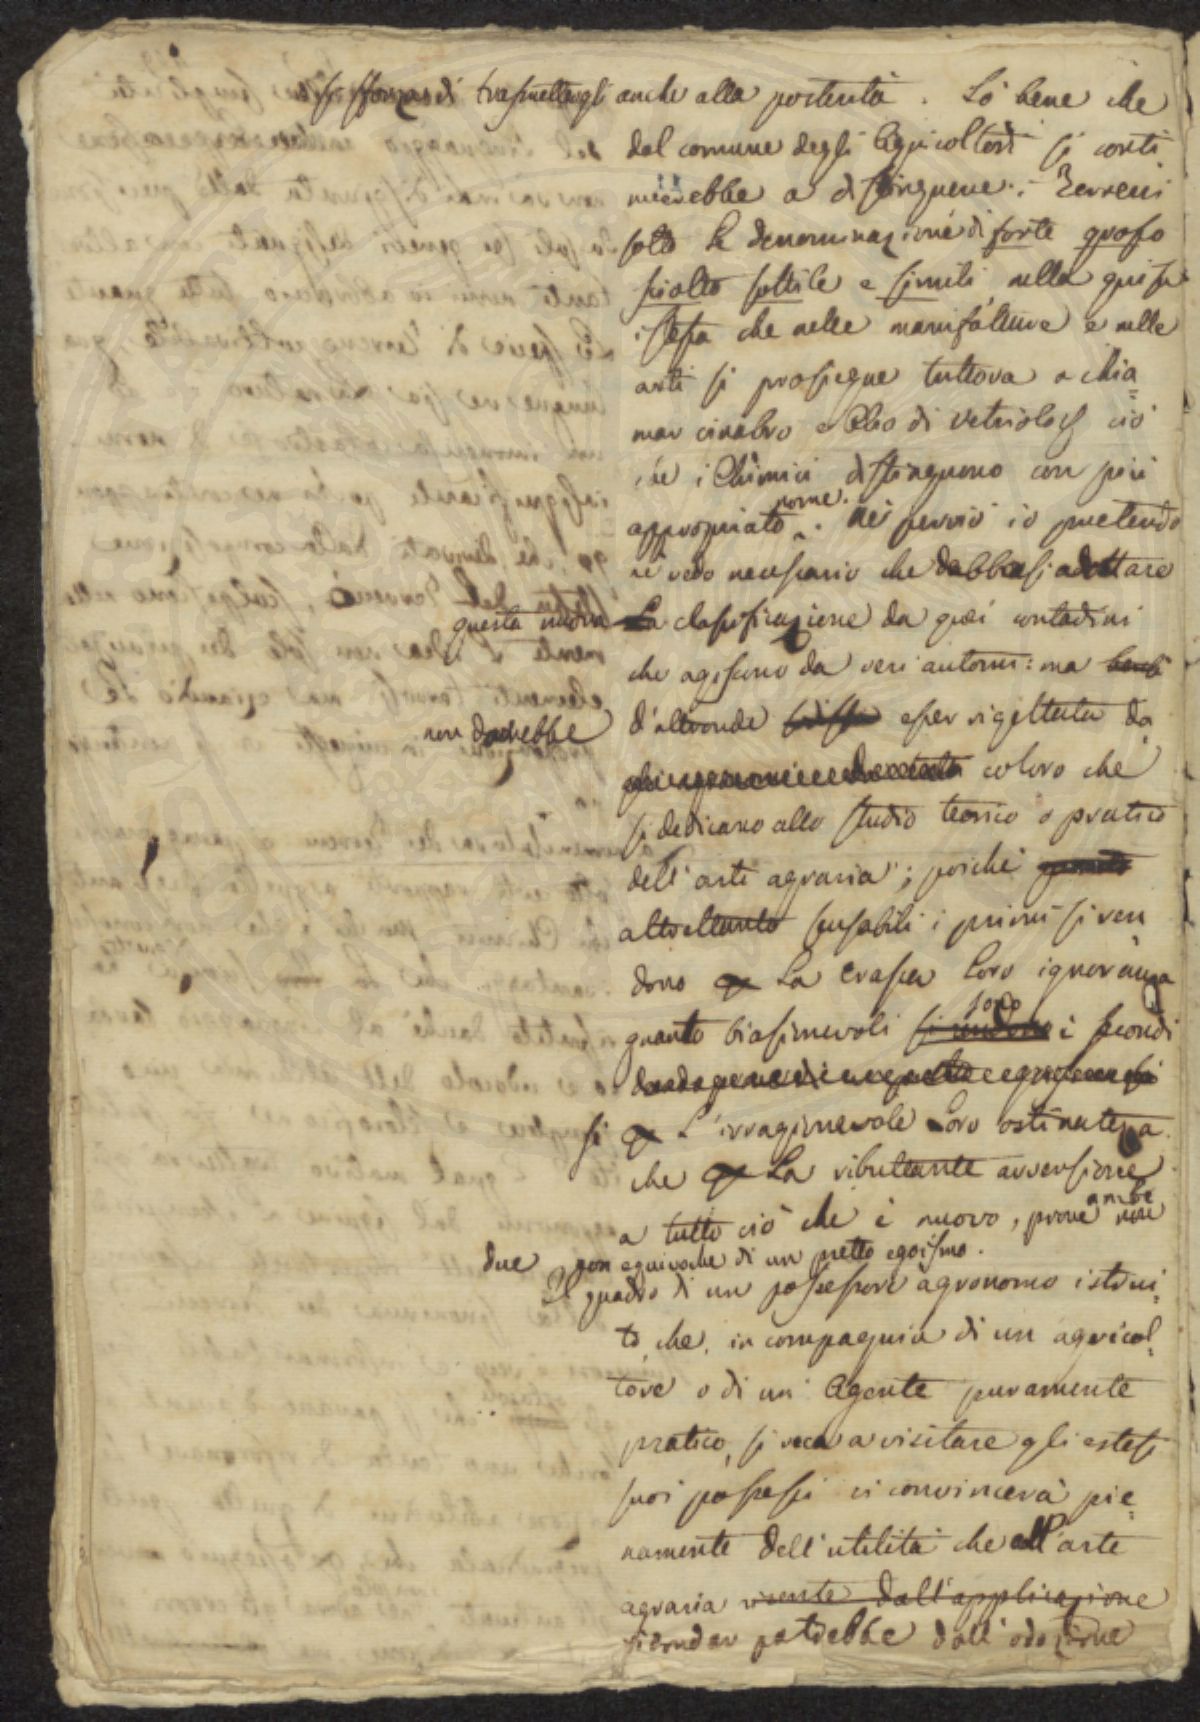 si sforza di trasmettergli anche alla posterità. So bene che
dal comune degli Agricoltori si conti
nuerebbe a distinguere i Terreni
sotto le denominazioni di forte grosso
sciolto sottile e simili nella guisa
istessa che nelle manifatture e nelle
arti si prosiegue tuttora a chia=
mar cinabro e Olio di Vetriolo ciò
che i Chimici distinguono con più
appropriato nome. Nè perciò io pretendo
nè vedo necessario che debbasi adottare
questa nuova classificazione da quei contadini
che agiscono da veri automi: ma
non dovrebbe d'altronde esser rigettata da
coloro che
si dedicano allo studio teorico o pratico
dell'arte agraria; poichè quanto
altrettanto scusabili i primi si ren
dono la crassa loro ignoranza
quanto biasimevoli si rendono sono i secondi
sì l'irragionevole loro ostinatezza
che la ributtante avversione
a tutto ciò che è nuovo, prove ambe
due non equivoche di un pretto egoismo.
Il quadro di un possessore agronomo istrui=
to, che, in compagnia di un agricol=
tore o di un Agente puramente
pratico, si reca a visitare gli estesi
suoi possessi ci convincerà pie=
namente dell'utilità che all'arte
agraria risente dall'applicazione
ridondar potrebbe dall'adozione